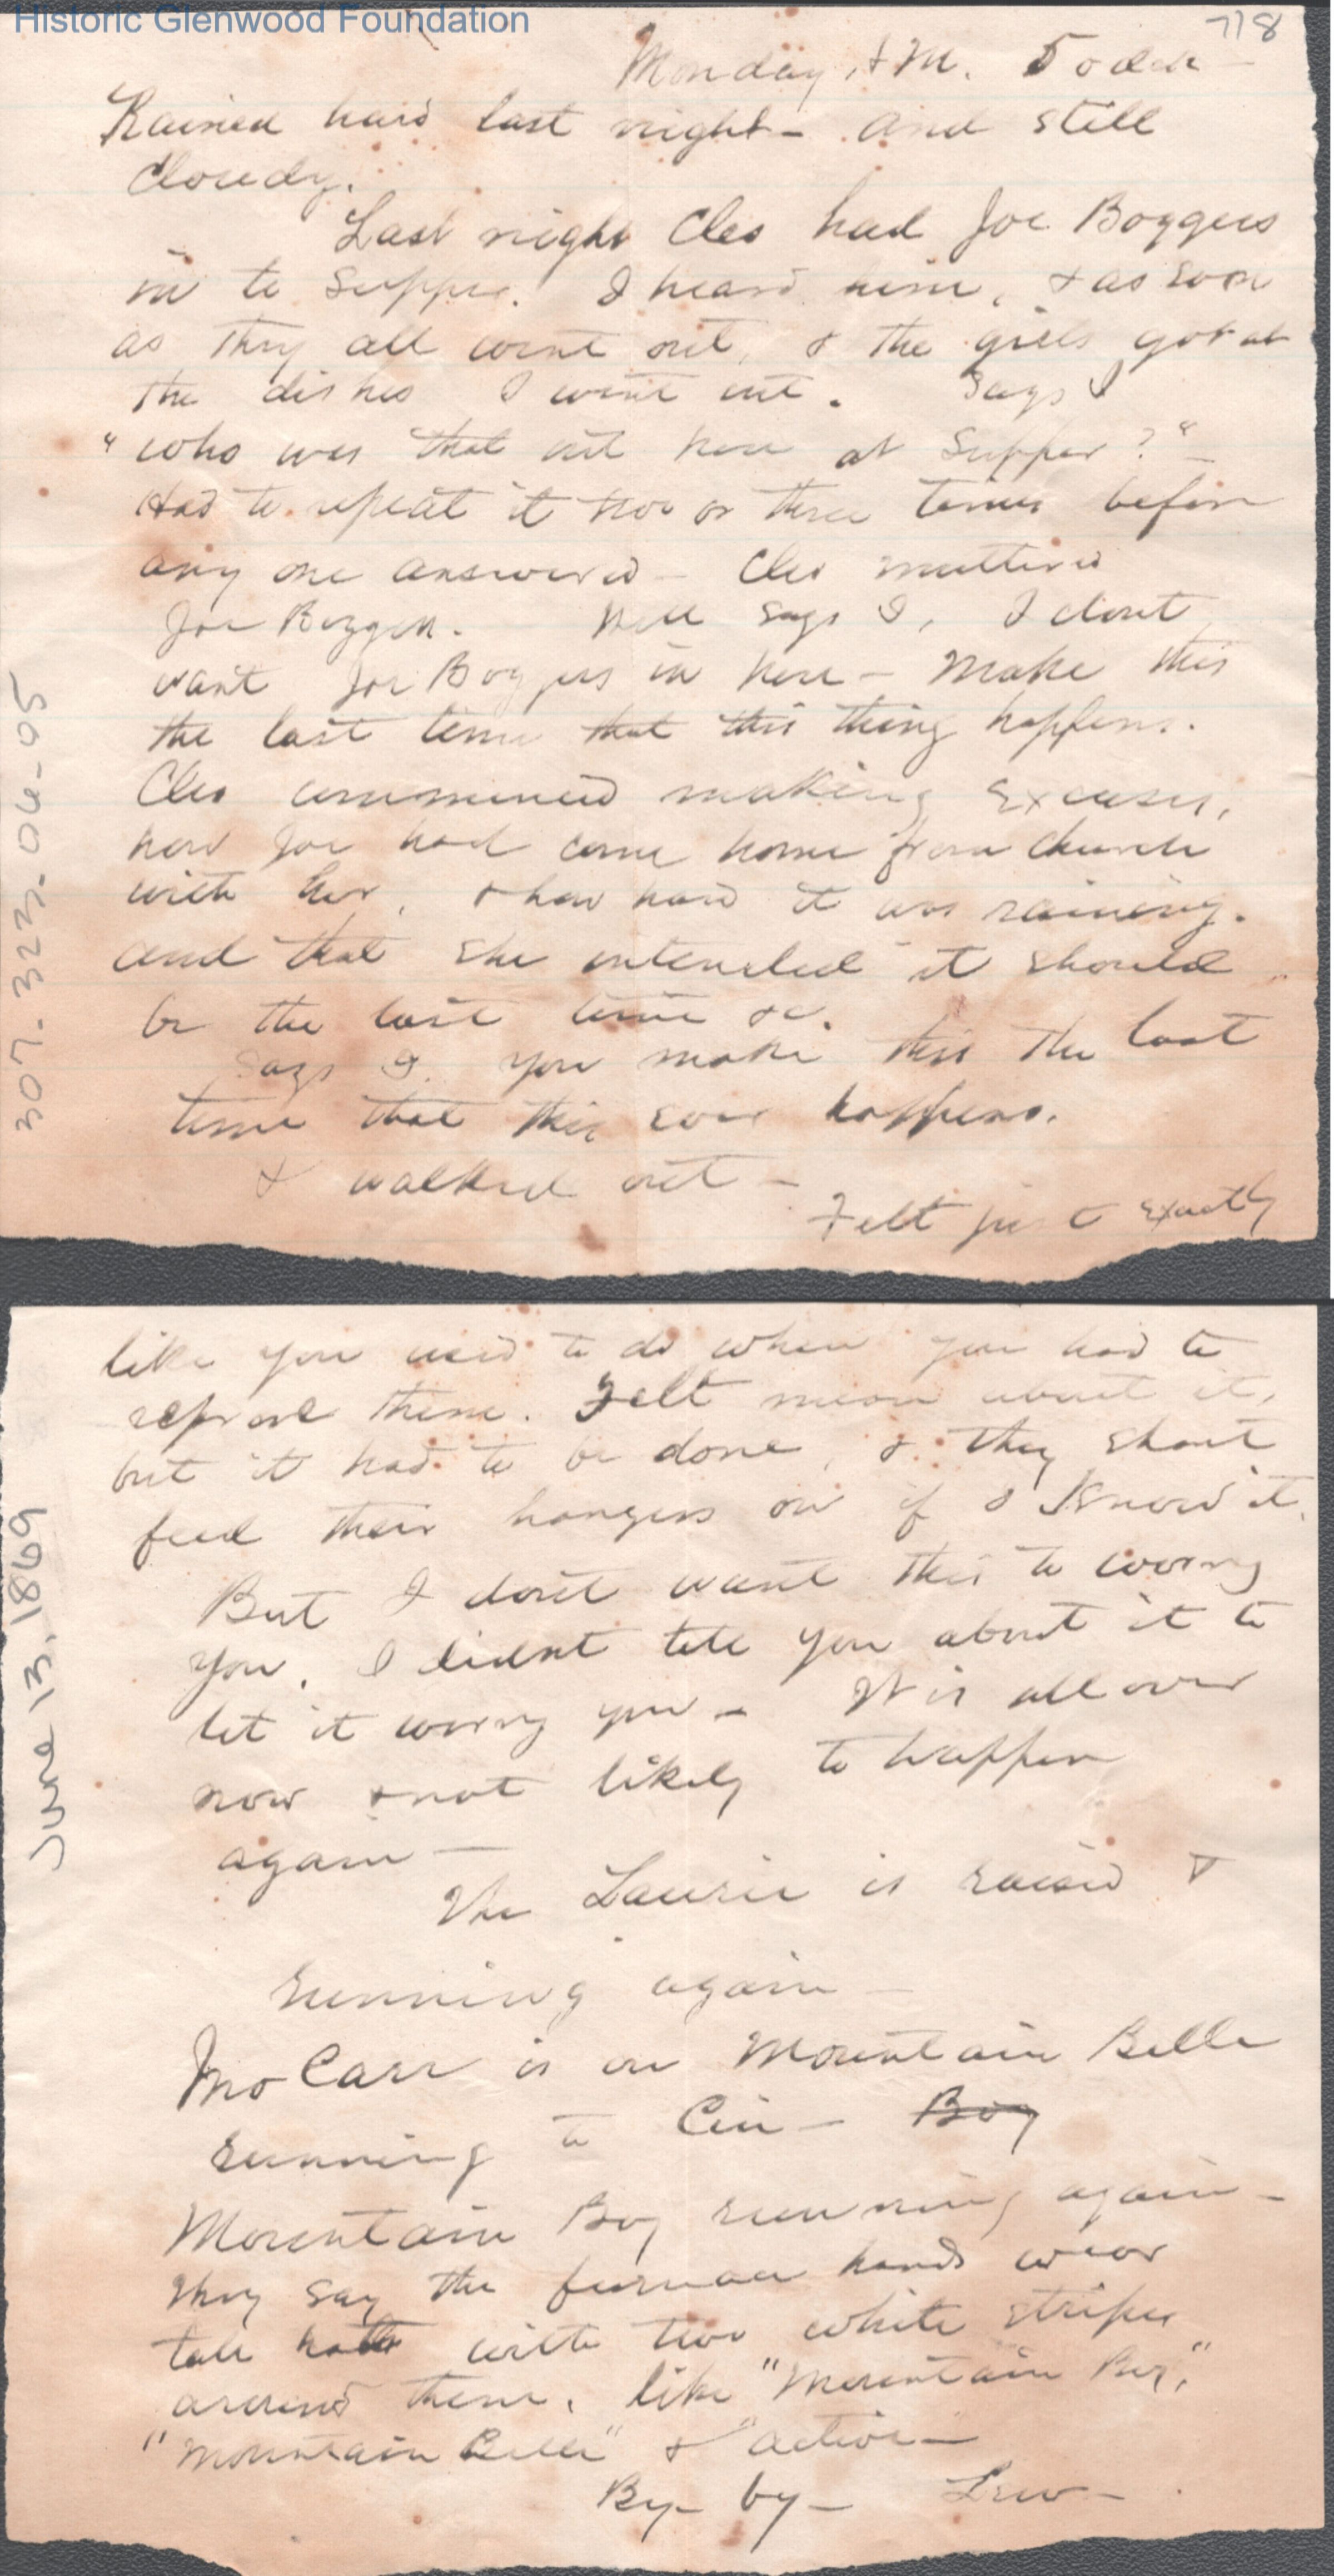 Historic Glenwood Foundation
718
Monday, A.M. 5 oclk -
Rained hard last night - and still
cloudy.
Last night Cleo had Joe Boggess
in to supper. I heard him, & as soon
as they all went out, & the girls got at
the dishes I went out. Says I
"who was that out here at supper?" -
Had to repeat it two or three times before
any one answered - Cleo muttered
Joe Boggess. Well says I, I dont
want Joe Boggess in here - Make this
the last time that this thing happens.
Cleo commenced making excuses,
how Joe had come home from church
with her, & how hard it was raining.
and that she intended it should
be the last time &c.
Says I. you make this the last
time that this ever happens.
& walked out -
Felt just exactly
307.322.06-05
like you used to do when you had to
reprove them. Felt mean about it,
but it had to be done, & they shant
feed their hangers on if I know it.
But I dont want this to worry
you. I didnt tell you about it to
let it worry you - It is all over
now & not likely to happen
again -
The Laurie is raised &
running again -
Jno Carr is on Mountain Belle
running to Cin - Boy
Mountain Boy running again -
They say the furnace hands wear
tall hats with two white stripes
around them, like "Mountain Boy,"
"Mountain Belle" & "Active -
By - by - Lew -
June 13, 1869